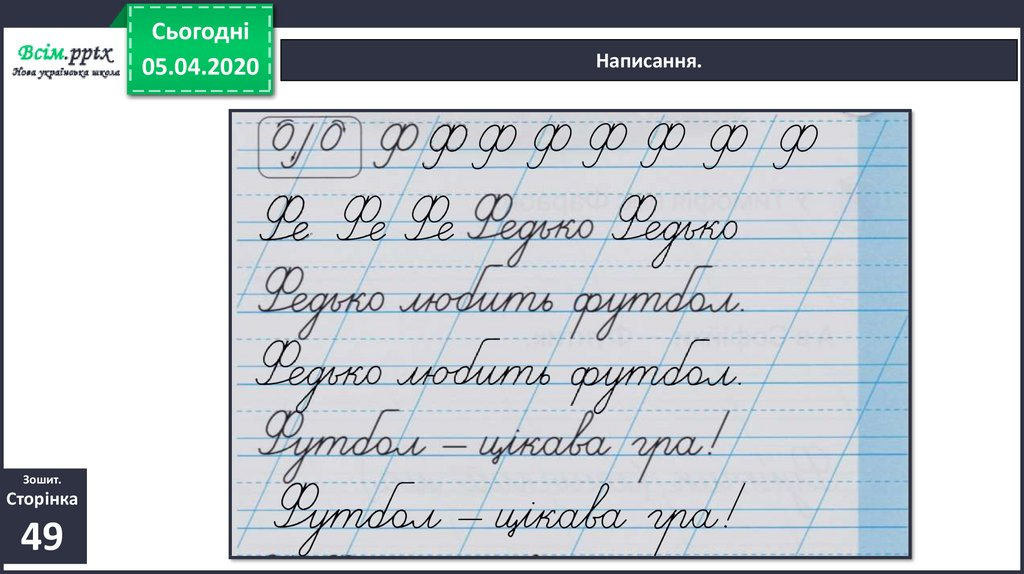 Сьогодні
05.04.2020
Всім.pptx
Нова українська школа
Написання.
Ф Ф Ф Ф Ф Ф Ф Ф
Фе Фе Фе Федько Федько
Федько любить футбол.
Федько любить футбол.
Футбол – цікава гра!
Футбол – цікава гра!
Зошит.
Сторінка
49